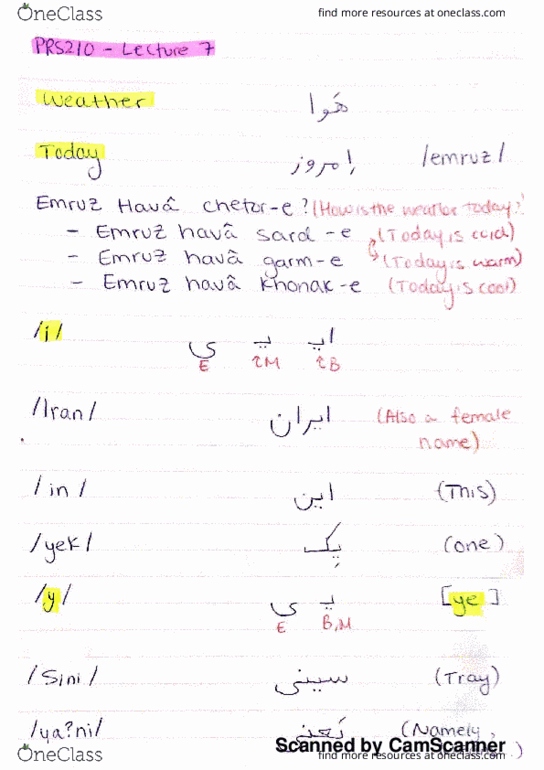 OneClass find more resources at oneclass.com
PRS210 - Lecture 7
Weather هَوا
Today اِمروز /emruz/
Emruz Havâ chetor-e? (How is the weather today?)
- Emruz havâ sard-e (Today is cold)
- Emruz havâ garm-e (Today is warm)
- Emruz havâ khonak-e (Today is cool)
/i/ ایـ یـ ی
E M B
/Iran/ ایران (Also a female
name)
/in/ این (This)
/yek/ یِک (one)
/y/ یـ ی [ye]
E B,M
/Sini/ سینی (Tray)
/ya?ni/ یَعنی (Namely,
OneClass Scanned by CamScanner
find more resources at oneclass.com